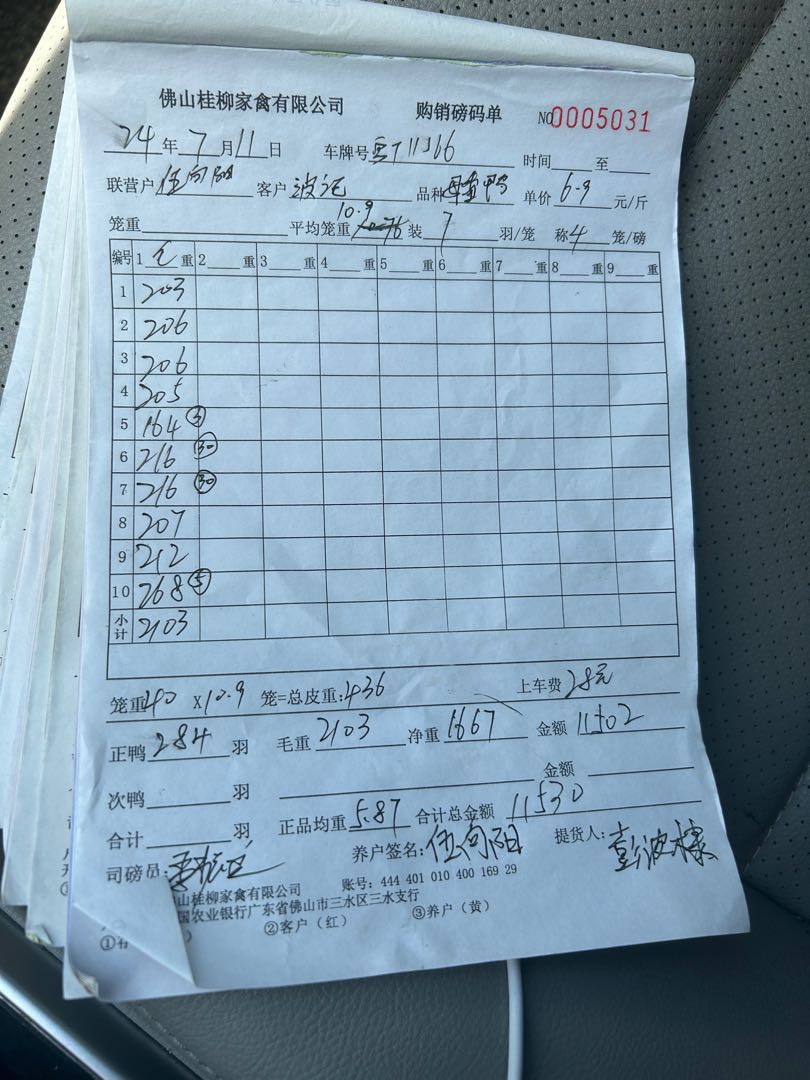 佛山桂柳家禽有限公司 购销磅码单 NO 0005031
24年7月11日 车牌号 11J66 时间 至
联营户 伍向阳 客户 波记 品种 单价 6.9 元/斤
笼重 平均笼重 10.9 装 7 羽/笼 称 4 笼/磅
编号 1 毛 重 2 重 3 重 4 重 5 重 6 重 7 重 8 重 9 重
1 203
2 206
3 206
4 205
5 164 ③
6 216 ㉚
7 216 ㉚
8 207
9 212
10 268 ⑤
小计 2103
笼重 40 x 10.9 笼=总皮重: 436 上车费 28元
正鸭 284 羽 毛重 2103 净重 1667 金额 11502
次鸭 羽 金额
合计 羽 正品均重 5.87 合计总金额 11530
司磅员: 养户签名: 伍向阳 提货人: 彭波棣
山桂柳家禽有限公司 账号: 444 401 010 400 169 29
国农业银行广东省佛山市三水区三水支行
① ②客户（红） ③养户（黄）